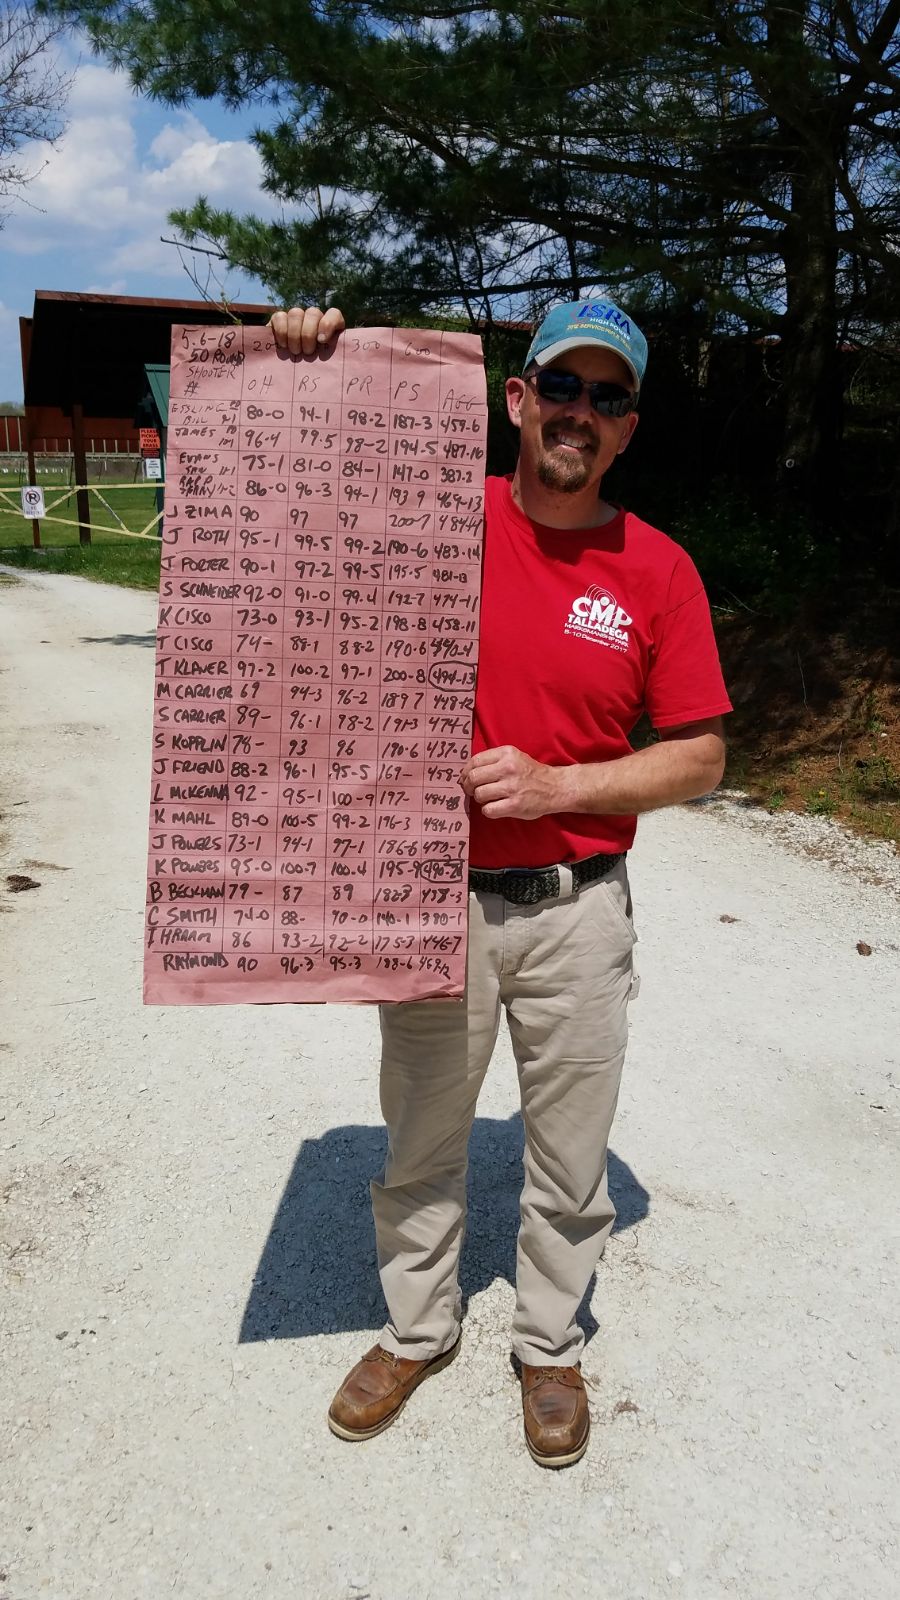 5-6-18 200 300 600
50 ROUND
SHOOTER OH RS PR PS AGG
#
ESSLING
BILL 80-0 94-1 98-2 187-3 459-6
JAMES 96-4 99-5 98-2 194-5 487-16
EVANS 75-1 81-0 84-1 147-0 387-2
RAPP 86-0 96-3 94-1 193 9 469-13
J ZIMA 90 97 97 200-7
J ROTH 95-1 99-5 99-2 190-6 483-14
J PORTER 90-1 97-2 99-5 195-5 481-13
S SCHNEIDER 92-0 91-0 99-4 192-7 474-11
K CISCO 73-0 93-1 95-2 198-8 458-11
T CISCO 74- 88-1 88-2 190-6
T KLAVER 97-2 100-2 97-1 200-8 494-13
M CARRIER 69 94-3 96-2 189 7 448-12
S CARRIER 89- 96-1 98-2 191-3 474-6
S KOPPLIN 78- 93 96 190-6 437-6
J FRIEND 88-2 96-1 95-5 169-
L MCKENNA 92- 95-1 100-9 197-
K MAHL 89-0 100-5 99-2 196-3 484-10
J POWERS 73-1 94-1 97-1 186-6
K POWERS 95-0 100-7 100-4 195-9
B BECKMAN 79- 87 89 182-3
C SMITH 74-0 88- 140-1 390-1
I HRAAM 86 93-2 92-2 175-3 446-7
RAYMOND 90 96-3 95-3 188-6 469-12
ISRA
HIGH POWER
CMP
TALLADEGA
MARKSMANSHIP PARK
5-10 December 2017
PLEASE
PICKUP
YOUR
BRASS
P